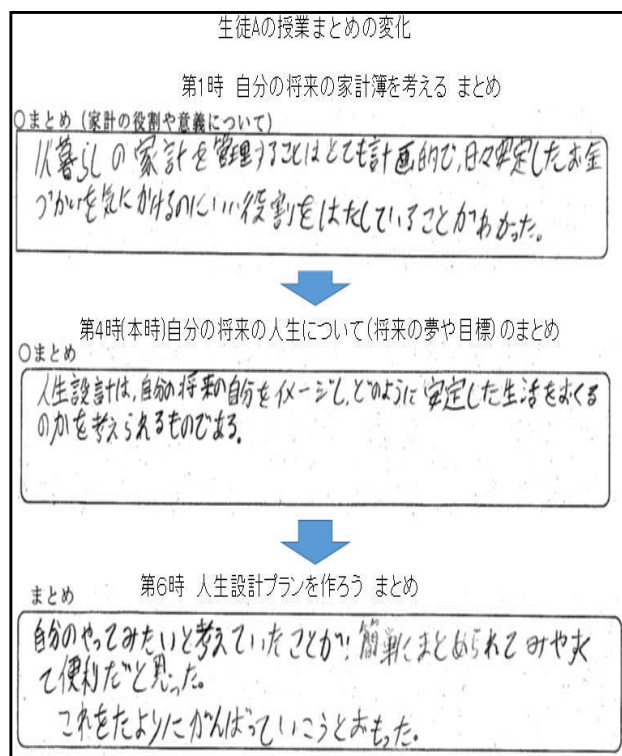 生徒Aの授業まとめの変化
第1時 自分の将来の家計簿を考える まとめ
○まとめ(家計の役割や意義について)
1人暮らしの家計を管理することはとても計画的で、日々安定したお金
づかいを気にかけるのにいい役割をはたしていることがわかった。
第4時(本時)自分の将来の人生について(将来の夢や目標)のまとめ
○まとめ
人生設計は、自分の将来の自分をイメージし、どのように安定した生活をおくる
のかを考えられるものである。
第6時 人生設計プランを作ろう まとめ
まとめ
自分のやってみたいと考えていたことが!簡単にまとめられてみやすく
て便利だと思った。
これをたよりにがんばっていこうとおもった。